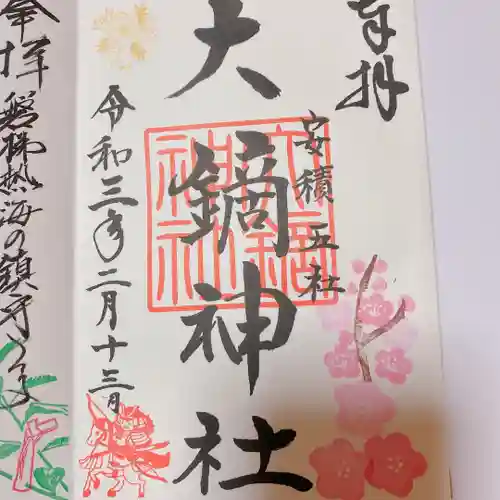 奉拝
安積五社
大鏑神社
令和三年二月十三日
奉拝
磐梯熱海の鎮守さま